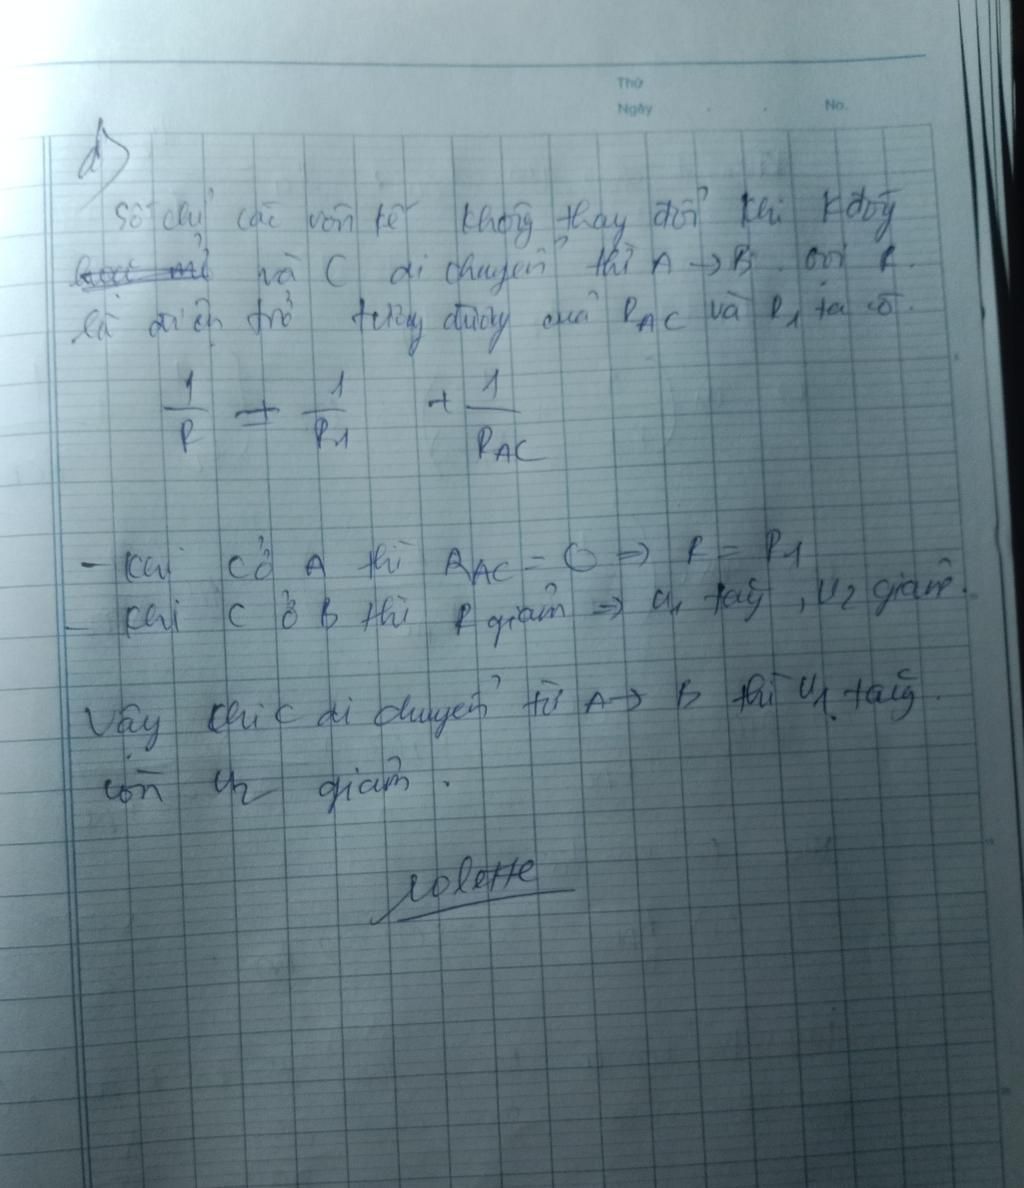 Thứ
Ngày . . No.
d)
Số chỉ các vôn kế không thay đổi khi K đóng
và C di chuyển thì A → B. Gọi R
là điện trở tương đương của RAC và R1 ta có.
1/R = 1/R1 + 1/RAC
- Khi C ở A thì RAC = 0 => R = R1
- Khi C ở B thì R giảm => U1 tăng, U2 giảm.
Vậy khi C di chuyển từ A → B thì U1 tăng.
còn U2 giảm.